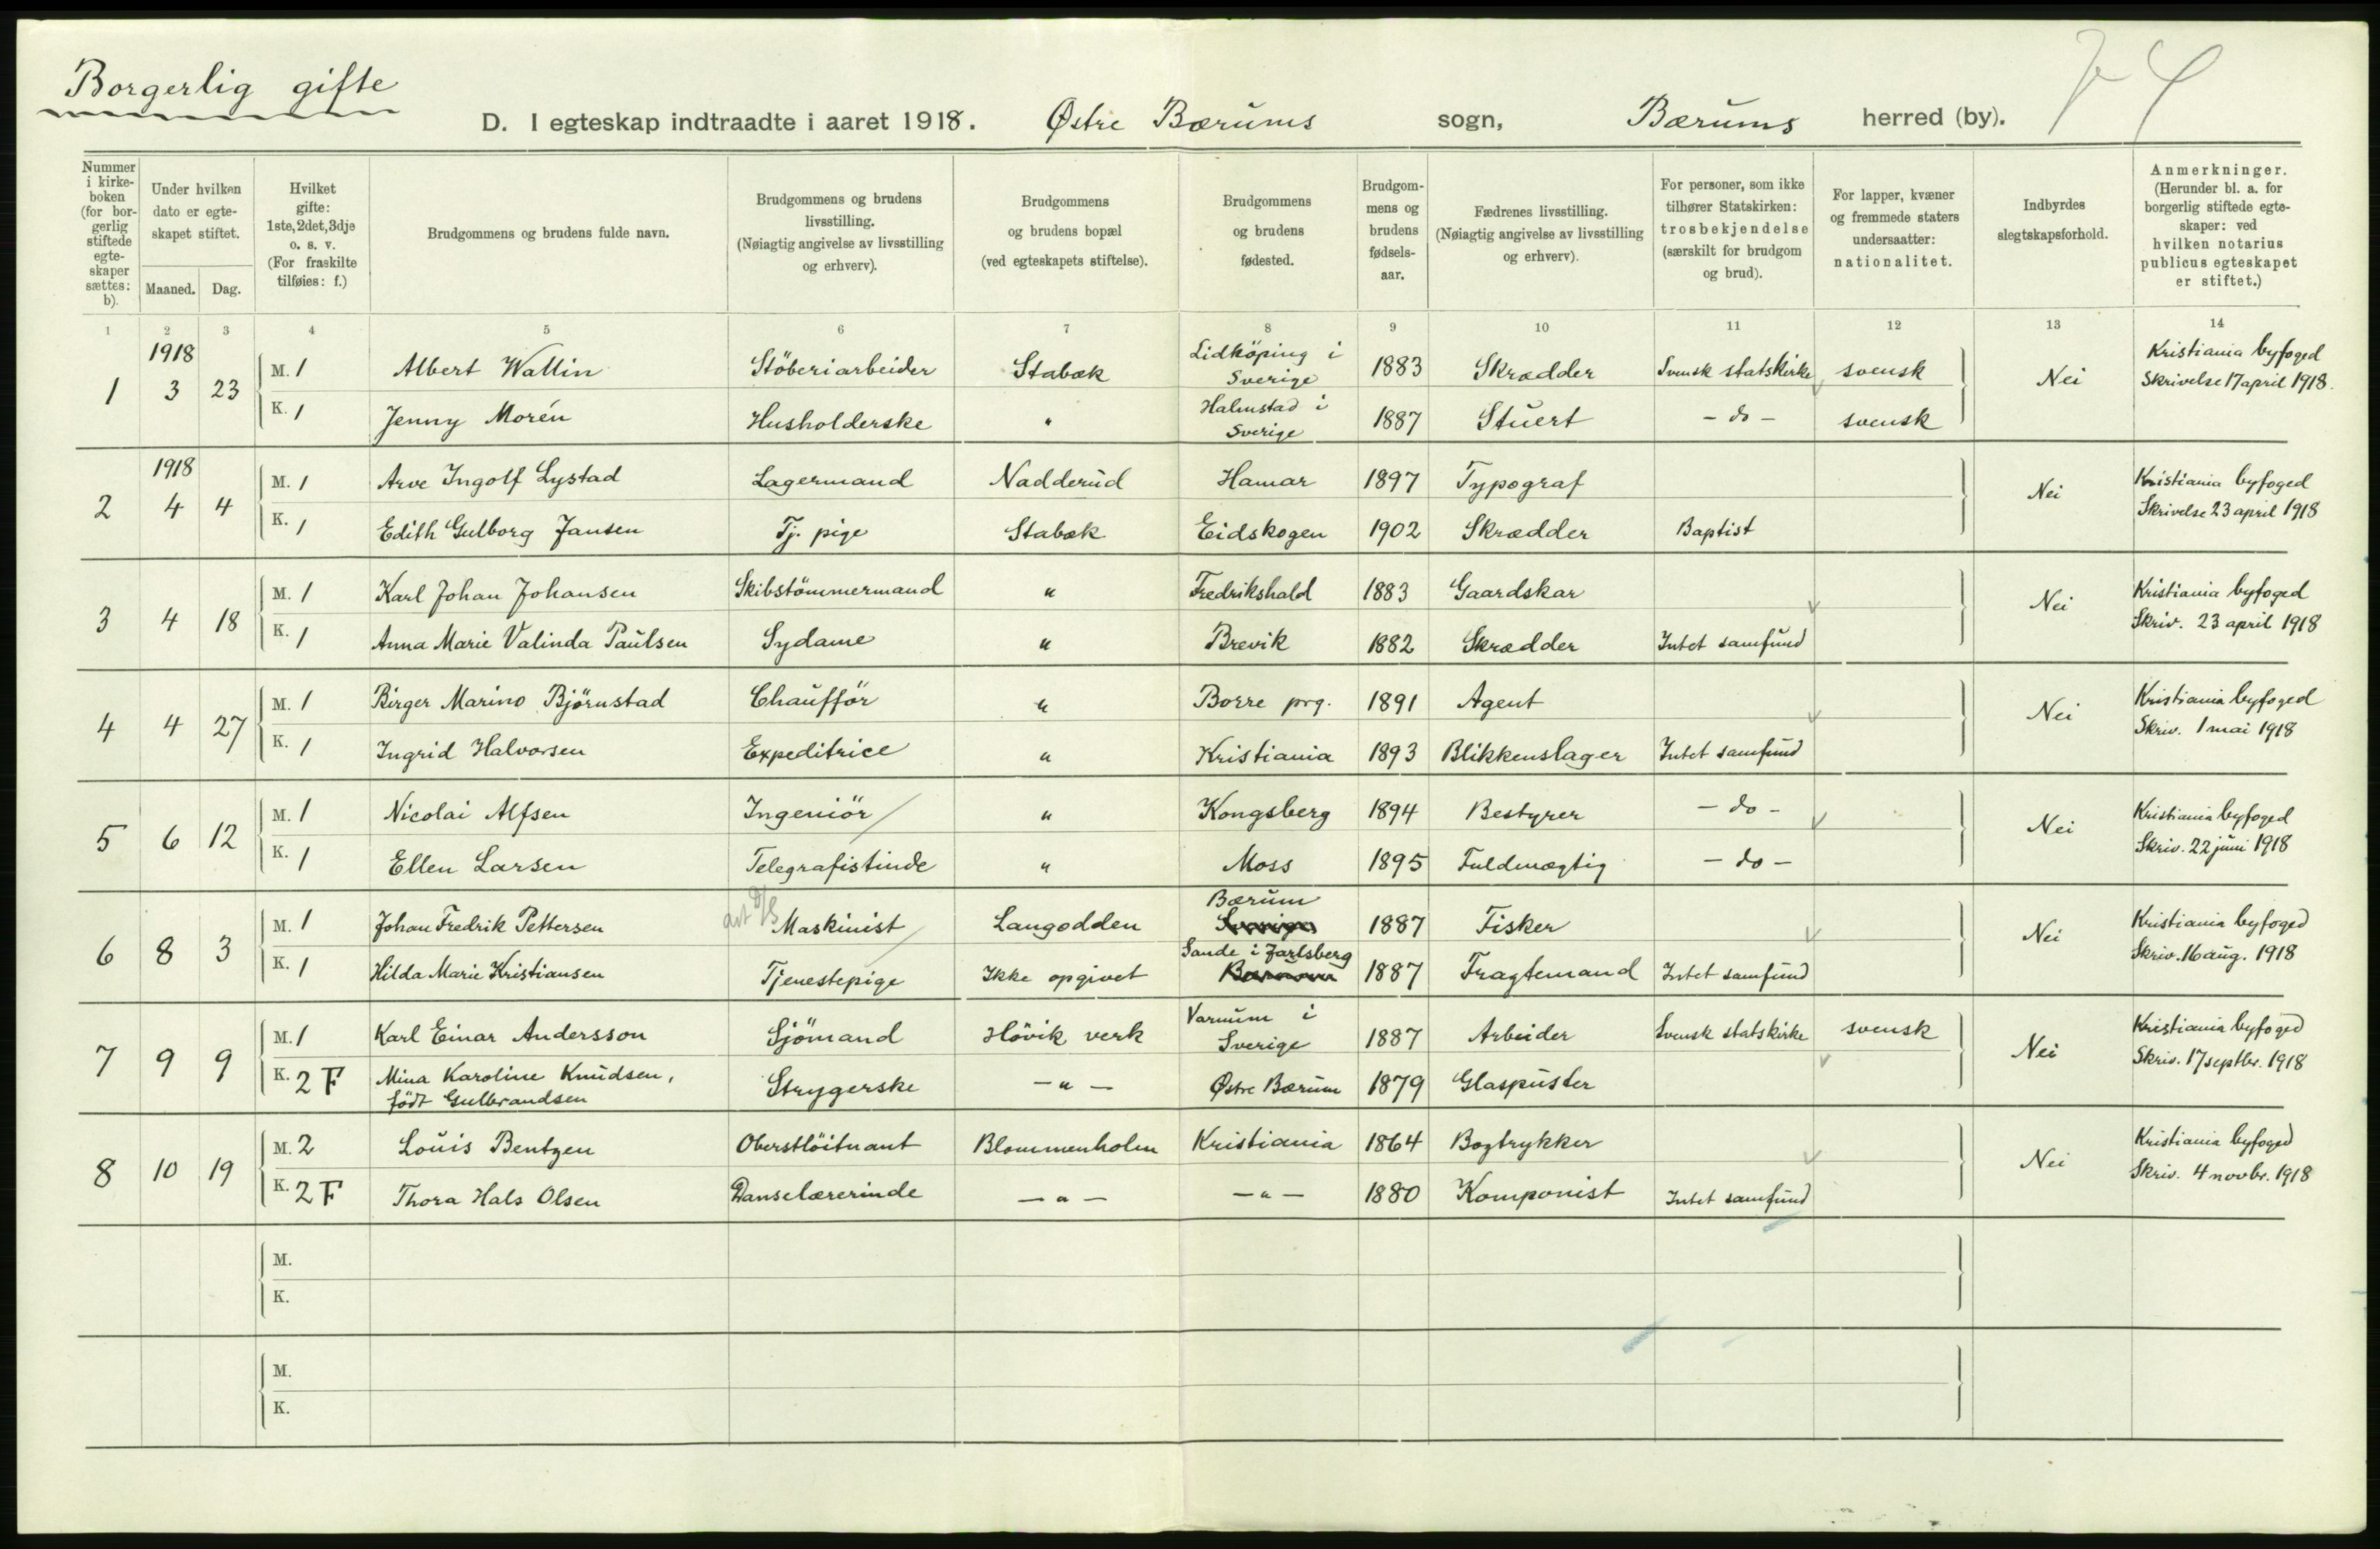 Borgerlig gifte
D. I egteskap indtraadte i aaret 1918. Østre Bærums sogn, Bærums herred (by).
Nummer i kirkeboken (for borgerlig stiftede egteskaper sættes: b).
Under hvilken dato er egteskapet stiftet.
Maaned. Dag.
Hvilket gifte: 1ste, 2det, 3dje o. s. v. (For fraskilte tilføies: f.)
Brudgommens og brudens fulde navn.
Brudgommens og brudens livsstilling. (Nøiagtig angivelse av livsstilling og erhverv).
Brudgommens og brudens bopæl (ved egteskapets stiftelse).
Brudgommens og brudens fødested.
Brudgommens og brudens fødselsaar.
Fædrenes livsstilling. (Nøiagtig angivelse av livsstilling og erhverv).
For personer, som ikke tilhører Statskirken: trosbekjendelse (særskilt for brudgom og brud).
For lapper, kvæner og fremmede staters undersaatter: nationalitet.
Indbyrdes slegtskapsforhold.
Anmerkninger. (Herunder bl. a. for borgerlig stiftede egteskaper: ved hvilken notarius publicus egteskapet er stiftet.)
1 2 3 4 5 6 7 8 9 10 11 12 13 14
1 1918 3 23 M. 1 Albert Wallin Stöberiarbeider Stabæk Lidköping i Sverige 1883 Skrædder Svensk statskirke svensk Nei Kristiania byfoged Skrivelse 17 april 1918.
K. 1 Jenny Morén Husholderske " Halmstad i Sverige 1887 Stuert - do - svensk
2 1918 4 4 M. 1 Arve Ingolf Lystad Lagermand Nadderud Hamar 1897 Typograf Nei Kristiania byfoged Skrivelse 23 april 1918
K. 1 Edith Gulborg Jansen Tj. pige Stabæk Eidskogen 1902 Skrædder Baptist
3 4 18 M. 1 Karl Johan Johansen Skibstömmermand " Fredrikshald 1883 Gaardskar Nei Kristiania byfoged Skriv. 23 april 1918
K. 1 Anna Marie Valinda Paulsen Sydame " Brevik 1882 Skrædder Intet samfund
4 4 27 M. 1 Birger Marino Björnstad Chaufför " Borre prg. 1891 Agent Nei Kristiania byfoged Skriv. 1 mai 1918
K. 1 Ingrid Halvorsen Expeditrice " Kristiania 1893 Blikkenslager Intet samfund
5 6 12 M. 1 Nicolai Alfsen Ingeniör " Kongsberg 1894 Bestyrer - do - Nei Kristiania byfoged Skriv. 22 juni 1918
K. 1 Ellen Larsen Telegrafistinde " Moss 1895 Fuldmægtig - do -
6 8 3 M. 1 Johan Fredrik Pettersen Maskinist Langodden Bærum 1887 Fisker Nei Kristiania byfoged Skriv. 16 aug. 1918
K. 1 Hilda Marie Kristiansen Tjenestepige Ikke opgivet Sande i Jarlsberg 1887 Fragtemand Intet samfund
7 9 9 M. 1 Karl Einar Andersson Sjömand Hövik verk Varnum i Sverige 1887 Arbeider Svensk statskirke svensk Nei Kristiania byfoged Skriv. 17 septbr. 1918
K. 2 F Mina Karoline Knudsen, födt Gulbrandsen Strygerske - " - Østre Bærum 1879 Glaspuster
8 10 19 M. 2 Louis Bentzen Oberstlöitnant Blommenholm Kristiania 1864 Bogtrykker Nei Kristiania byfoged Skriv. 4 novbr. 1918
K. 2 F Thora Hals Olsen Danselærerinde - " - - " - 1880 Komponist Intet samfund
M.
K.
M.
K.